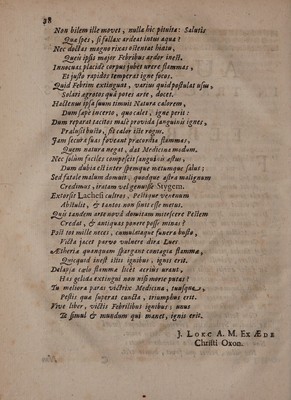 38
Non bilem ille movet, nulla hic pituita: Salutis
Quæ spes, si fallax ardeat intus aqua?
Nec doctas magno rixas ostentat hiatu,
Queis ipsis major Febribus ardor inest.
Innocuas placidè corpus jubet urere flammas,
Et justo rapidos temperat igne focos.
Quid Febrim extinguat, varius quid postulat usus,
Solari ægrotos quâ potes arte, doces.
Hactenus ipsa suum timuit Natura calorem,
Dum sæpe incerto, quo calet, igne perit:
Dum reparat tacitos male provida sanguinis ignes,
Prælusit busto, fit calor iste rogus.
Jam secura suas foveant præcordia flammas,
Quem natura negat, dat Medicina modum.
Nec solùm faciles compescis sanguinis æstus,
Dum dubia est inter spemque metumque salus;
Sed fatale malum domuit, quodque astra malignum
Credimus, iratam vel genuisse Stygem.
Extorsit Lachesi cultros, Pestique venenum
Abstulit, & tantos non sinit esse metus.
Quis tandem arte novâ domitam mitescere Pestem
Credat, & antiquas ponere posse minas?
Post tot mille neces, cumulataque funera busto,
Victa jacet parvo vulnere dira Lues.
Ætheriæ quanquam spargunt contagia flammæ,
Quicquid inest istis ignibus, ignis erit.
Delapsæ cælo flammæ licet acrius urant,
Has gelida extingui non nisi morte putas?
Tu meliora paras victrix Medicina; tuusque,
Pestis quæ superat cuncta, triumphus erit.
Vive liber, victis Febrilibus ignibus; unus
Te simul & mundum qui manet, ignis erit.
J. Lock A. M. Ex Æde
Christi Oxon.